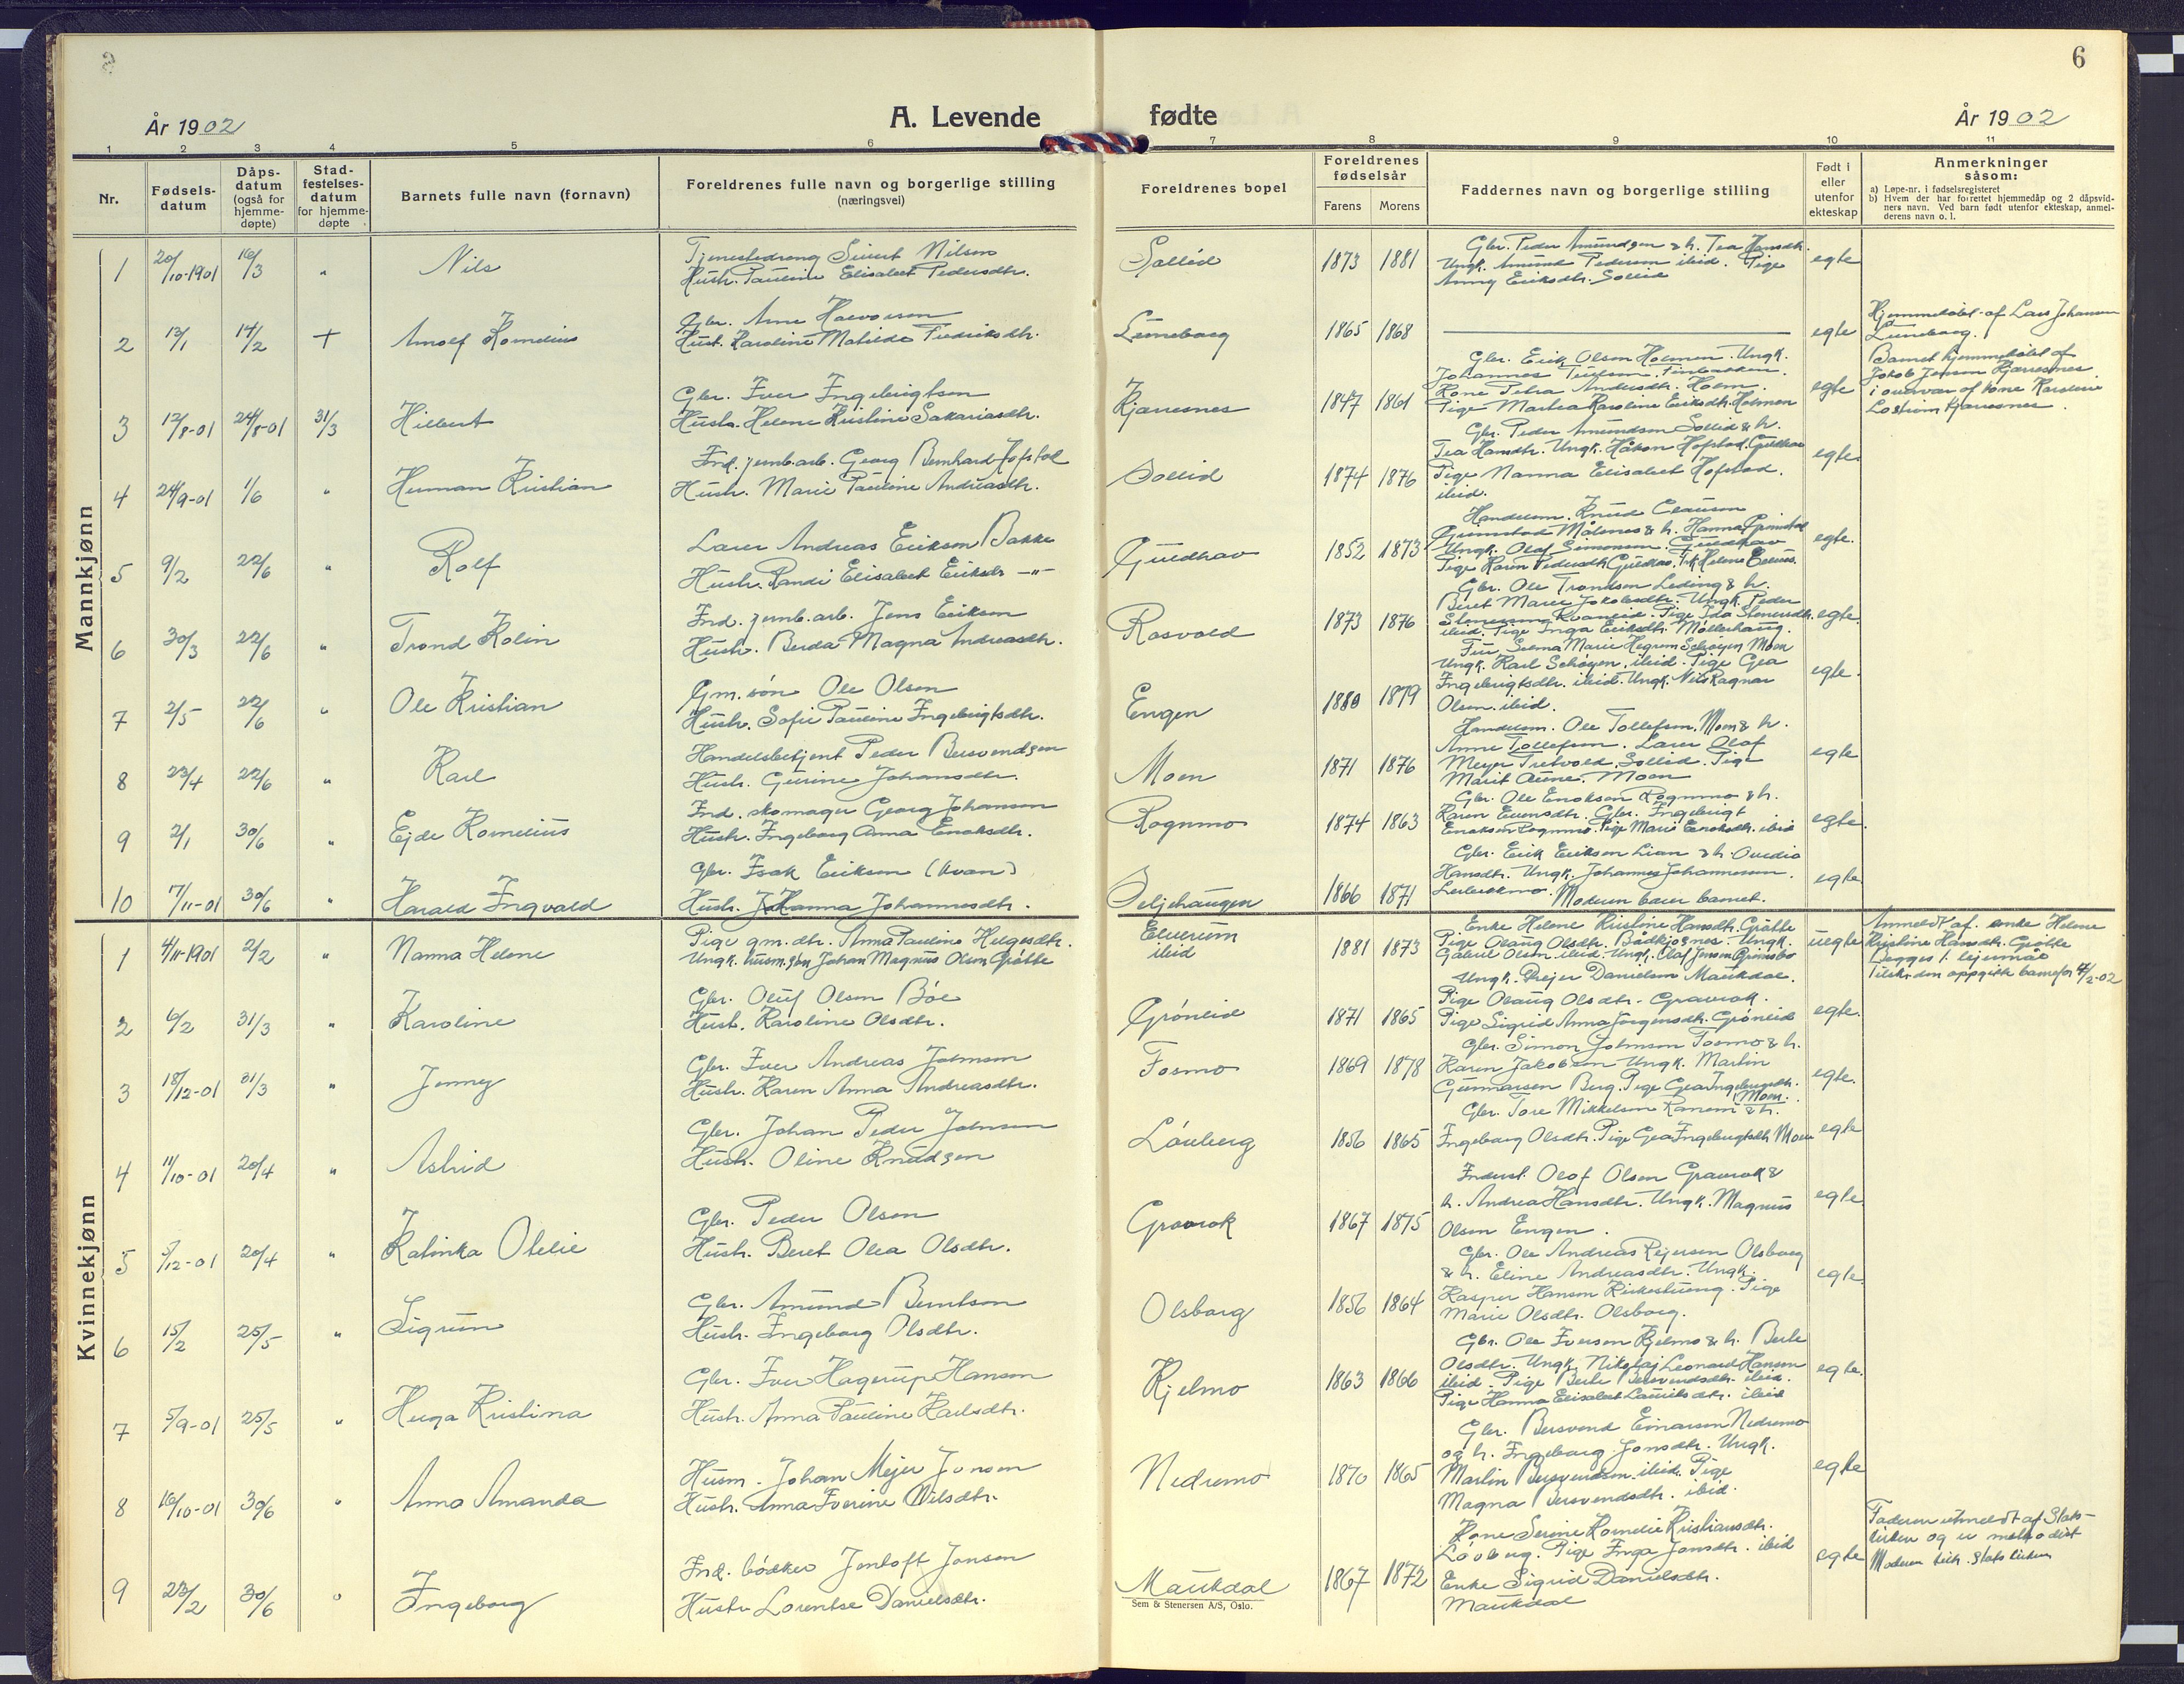 6
År 1902
A. Levende
fødte
År 1902
1 2 3 4 5 6 7 8 9 10 11
Nr.
Fødsels-
datum
Dåps-
datum
(også for
hjemme-
døpte)
Stad-
festelses-
datum
for hjemme-
døpte
Barnets fulle navn (fornavn)
Foreldrenes fulle navn og borgerlige stilling
(næringsvei)
Foreldrenes bopel
Foreldrenes
fødselsår
Farens Morens
Faddernes navn og borgerlige stilling
Født i
eller
utenfor
ekteskap
Anmerkninger
såsom:
a) Løpe-nr. i fødselsregisteret
b) Hvem der har forrettet hjemmedåp og 2 dåpsvid-
ners navn. Ved barn født utenfor ekteskap, anmel-
derens navn o. l.
Mannkjønn
1 20/10-1901 16/3 " Nils
Tjenestedreng Sivert Nilsen
Hustr. Pauline Elisabet Pedersdtr.
Sollid 1873 1881
Gbr. Peder Amundsen & h. Tea Hansdtr.
Ungk. Amund Pedersen ibid. Pige
Anny Eriksdtr. Sollid
egte
2 13/1 14/2 + Arnolf Kornelius
Gbr. Arne Halvorsen
Hust. Karoline Matilde Fredriksdtr.
Luneborg 1865 1868
egte
Hjemmedøbt af Lars Johansen
Luneborg.
3 17/8-01 24/8-01 31/3 Hilbert
Gbr. Iver Ingebrigtsen
Hustr. Helene Kristine Sakariasdtr.
Kjærresnes 1847 1861
Gbr. Erik Olsen Holmen. Ungk.
Johannes Finbakken.
Kone Petra Andersdtr. Holm.
Pige Martea Karoline Eriksdtr. Holmen
egte
Barnet hjemmedøbt af
Jakob Jensen Kjærresnes
i overvær af kone Karoline
Kjærresnes.
4 24/9-01 1/6 " Herman Kristian
Ind. jernb.arb. Georg Bernhard Hofstad
Hustr. Marie Pauline Andreasdtr.
Sollid 1874 1876
Gbr. Peder Amundsen Sollid & h.
Tea Hansdtr. Ungk. Håkon Hofstad, Guldhav
Pige Nanna Elisabet Hofstad.
ibid.
egte.
5 9/2 22/6 " Rolf
Lærer Andreas Eriksen Bakke
Hustr. Randi Elisabet Eriksdtr —"—
Guldhav 1852 1873
Handelsm. Knud Clausen
Grimstad Målsnes & h. Hanna Grimstad
Ungk. Olaf Simonsen. Guldhav
Pige Karen Pedersdtr. Guldhav.
egte.
6 30/3 22/6 " Trond Kolin
Ind. jernb.arb. Jens Eriksen
Hustr. Berda Magna Andreasdtr.
Rosvold 1873 1876
Gbr. Ole Trondsen Leding & h.
Beret Marie Jakobsdtr. Ungk. Peder
ibid. Pige Inga Eriksdtr. Møllerhaug.
egte.
7 2/5 22/6 " Ole Kristian
Gm. søn Ole Olsen
Hustr. Sofie Pauline Ingebrigtsdtr.
Engen 1880 1879
Fru Selma Marie Hegrem Schøyen Moen
Ungk. Karl Schøyen, ibid. Pige Gea
Ingebrigtsdtr. ibid. Ungk. Nils Ragnar
Olsen. ibid.
egte.
8 23/4 22/6 " Karl
Handelsbetjent Peder Bersvendsen
Hustr. Gurine Johansdtr.
Moen 1871 1876
Handelsm. Ole Tollefsen, Moen & h.
Anne Tollefsen. Lærer Olaf
Meyer Tretvold, Sollid. Pige
Marit Aune. Moen
egte
9 2/1 30/6 " Ejde Kornelius
Ind. skomager Georg Johansen
Hustr. Ingeborg Anna Enoksdtr.
Rognmo 1874 1863
Gbr. Ole Enoksen Rognmo & h.
Karen Evensdtr. Gbr. Ingebrigt
Enoksen Rognmo. Pige Marie Enoksdtr. ibid
egte
10 7/11-01 30/6 " Harald Ingvald
Gbr. Isak Eriksen (Kvæn)
Hustr. Johanna Johannesdtr.
Seljehaugen 1866 1871
Gbr. Erik Eriksen Lian & h. Ovedia
Hansdtr. Ungk. Johannes Johannessen.
Moderen bærer barnet.
egte
Kvinnekjønn
1 4/11-1901 2/2 " Nanna Helene
Pige gm. dtr. Anna Pauline Helgesdtr.
Ungk. husm. søn Johan Magnus Olsen Grøtte
Elverum
ibid
1881 1873
Enke Helene Kristine Hansdtr. Grøtte
Pige Olaug Olsdtr. Bådkjosnes. Ungk.
Gabriel Olsen ibid. Ungk. Olaf Jensen Grimsbo
uegte
Anmeldt af enke Helene
Kristine Hansdtr. Grøtte
Begges 1. lejermål
2 6/2 31/3 " Karoline
Gbr. Oluf Olsen Bøe
Hust. Karoline Olsdtr.
Grønlid 1871 1865
Ungk. Mejer Danielsen Maukdal.
Pige Olaug Olsdtr. Gravrok.
Pige Sigrid Anna Jørgensdtr. Grønlid
egte.
3 18/12-01 31/3 " Jenny
Gbr. Iver Andreas Johnsen
Hustr. Karen Anna Andreasdtr.
Fosmo 1869 1878
Gbr. Simon Johnsen Fosmo & h.
Karen Jakobsen. Ungk. Martin
Gunnarsen Berg. Pige Gea Ingebrigtsdtr.
Moen.
egte.
4 11/10-01 20/4 " Astrid
Gbr. Johan Peder Johnsen
Hustr. Oline Knudsen
Løvberg 1856 1865
Gbr. Tore Mikkelsen Ranem & h.
Ingeborg Olsdtr. Pige Gea Ingebrigtsdtr Moen
egte
5 5/12-01 20/4 " Katinka Otelie
Gbr. Peder Olsen
Hustr. Beret Olea Olsdtr.
Gravrok 1867 1875
Inderst Olof Olsen Gravrok &
h. Andrea Hansdtr. Ungk. Magnus
Olsen Engen.
egte
6 15/2 25/5 " Sigrun
Gbr. Amund Berntsen
Hustr. Ingeborg Olsdtr.
Olsborg 1856 1864
Gbr. Ole Andreas Rejersen Olsborg
& h. Eline Andreasdtr. Ungk.
Kasper Hansen Kirkestueng. Pige
Marie Olsdtr. Olsborg.
egte
7 5/9-01 25/5 " Huga Kristina
Gbr. Iver Hagerup Hansen
Hustr. Anna Pauline Karlsdtr.
Kjelmo 1863 1866
Gbr. Ole Iversen Kjelmo & h. Berte
Olsdtr. Ungk. Nikolaj Leonard Hansen
ibid. Pige Berte Bersvendsdtr. ibid.
Pige Hanna Elisabet Lauritsdtr. ibid
egte
8 16/10-01 30/6 " Anna Amanda
Husm. Johan Mejer Jonsen
Hustr. Anna Iverine Nilsdtr.
Nedremo 1870 1865
Gbr. Bersvend Einarsen Nedremo
og h. Ingeborg Jonsdtr. Ungk.
Martin Bersvendsen ibid. Pige
Magna Bersvendsdtr. ibid.
egte
9 23/2 30/6 " Ingeborg
Ind. bødker Jentoft Jonsen
Hustr Lorentse Danielsdtr.
Maukdal 1867 1872
Kone Serine Kornelie Kristiansdtr.
Løvberg. Pige Inga Jonsdtr. ibid
Enke Sigrid Danielsdtr.
Maukdal
egte
Faderen utmeldt af Stats-
kirken og er methodist
Moderen tilh. statskirken
Sem & Stenersen A/S, Oslo.